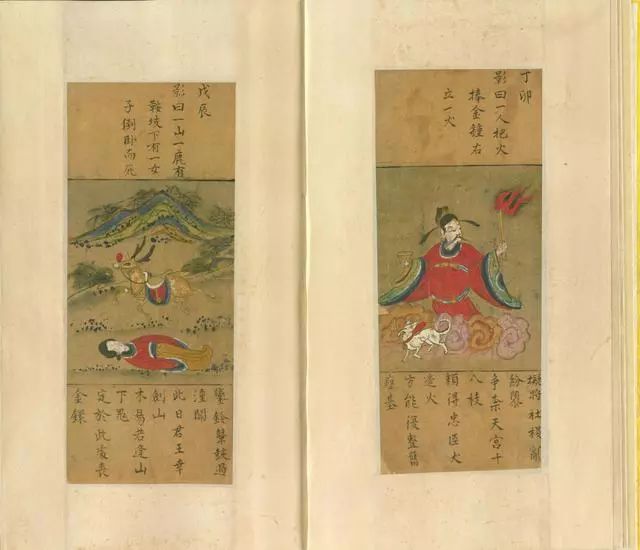 丁卯
影曰一人把火
捧金鐘右
立一犬
擬將社稷亂
紛黎
爭奈天宮十
八枝
賴得忠臣犬
邊火
方能復整舊
基
戊辰
影曰一山一鹿有
鞍坡下有一女
子倒卧而死
鑾鈴鼙鼓過
潼關
此日君王幸
劍山
木易若逢山
下鬼
定於此處喪
金鐶